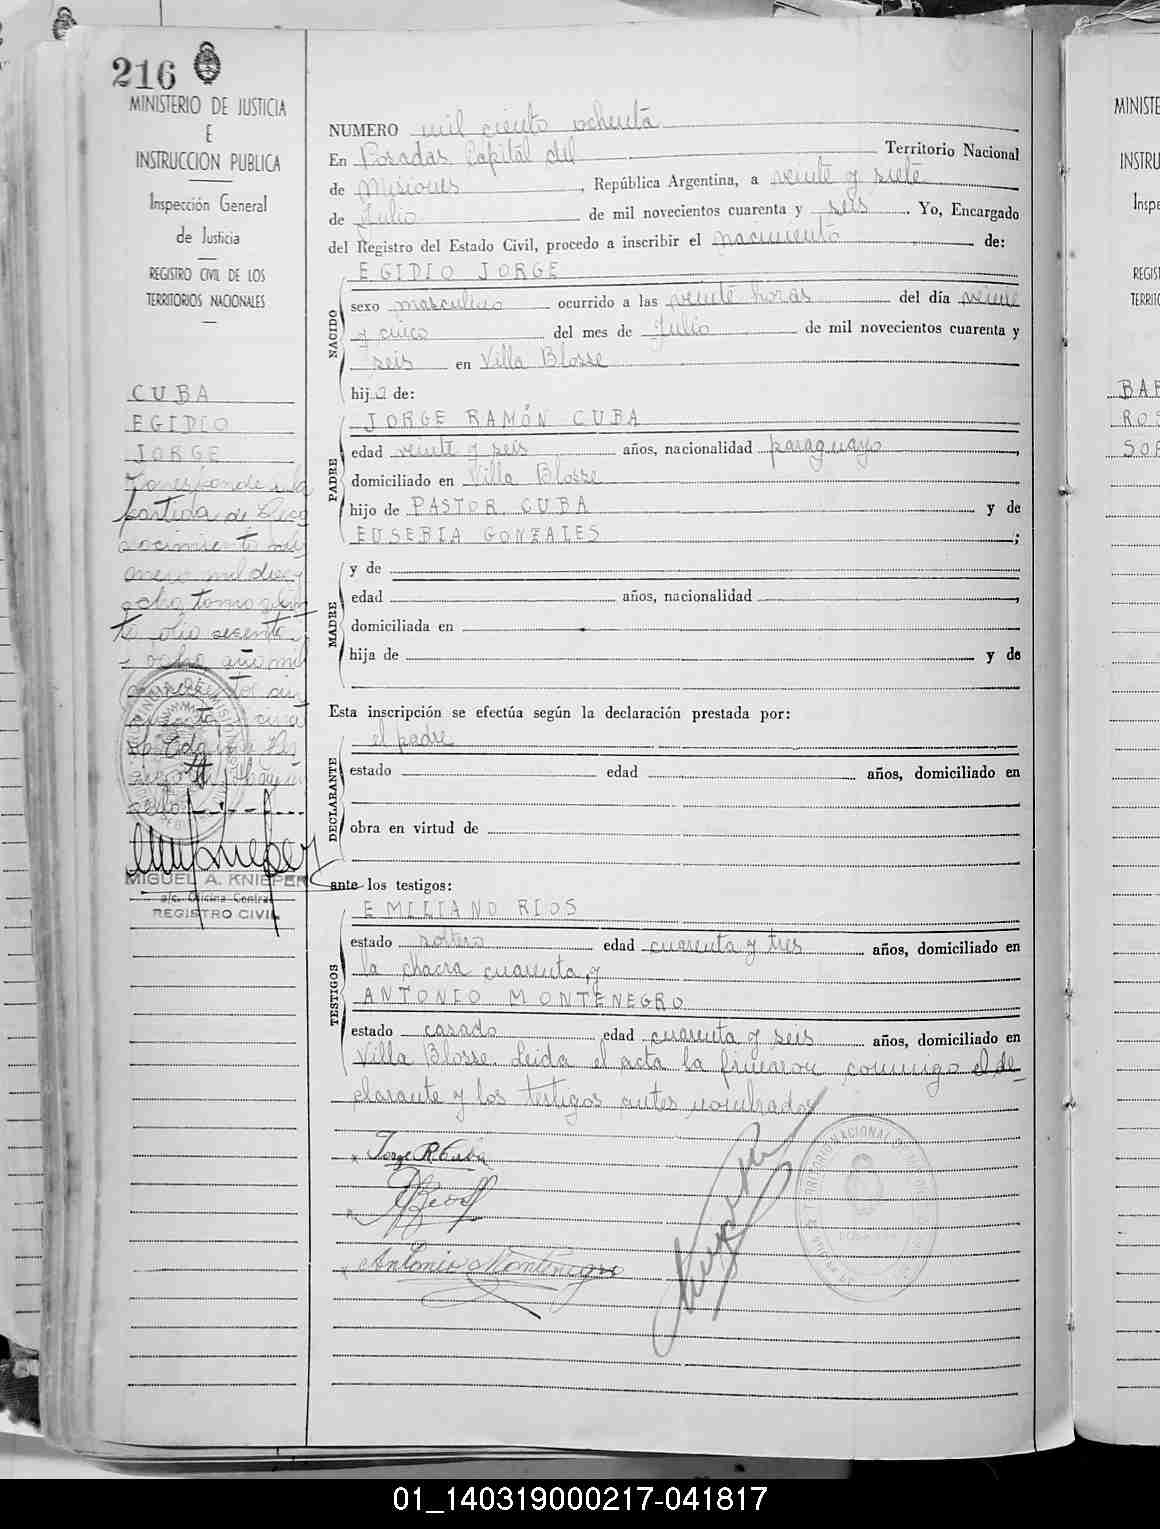 216
MINISTERIO DE JUSTICIA
E
INSTRUCCION PUBLICA
Inspección General
de Justicia
REGISTRO CIVIL DE LOS
TERRITORIOS NACIONALES
CUBA
EGIDIO
JORGE
partida de
ocho, tomo
te folio sesenta
y ocho año mil
MIGUEL A. KNIEPER
a/c. Oficina Central
REGISTRO CIVIL
NUMERO mil ciento ochenta
En Posadas Capital del Territorio Nacional
de Misiones, República Argentina, a veinte y siete
de Julio de mil novecientos cuarenta y seis. Yo, Encargado
del Registro del Estado Civil, procedo a inscribir el nacimiento de:
NACIDO
EGIDIO JORGE
sexo masculino ocurrido a las veinte horas del día veinte
y cinco del mes de Julio de mil novecientos cuarenta y
seis en Villa Blosse
hijo de:
PADRE
JORGE RAMÓN CUBA
edad veinte y seis años, nacionalidad paraguayo,
domiciliado en Villa Blosse
hijo de PASTOR CUBA y de
EUSEBIA GONZALES;
MADRE
y de
edad años, nacionalidad,
domiciliada en
hija de y de
Esta inscripción se efectúa según la declaración prestada por:
DECLARANTE
el padre
estado edad años, domiciliado en
obra en virtud de
ante los testigos:
TESTIGOS
EMILIANO RIOS
estado soltero edad cuarenta y tres años, domiciliado en
la chacra cuarenta, y
ANTONIO MONTENEGRO
estado casado edad cuarenta y seis años, domiciliado en
Villa Blosse. Leida el acta la firmaron conmigo el de-
clarante y los testigos antes nombrados
Jorge R. Cuba
Antonio Montenegro
MINISTE
INSTRU
Inspe
REGIST
TERRITO
BAR
ROS
SOF
01_140319000217-041817